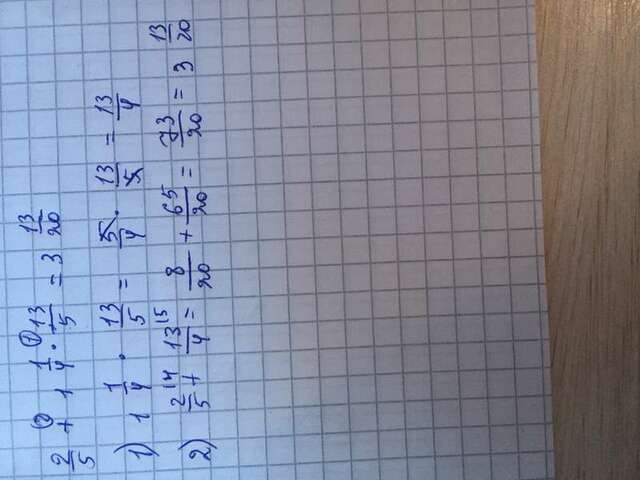 2/5 +② 1 1/4 ·① 13/5 = 3 13/20
1) 1 1/4 · 13/5 = 5/4 · 13/5 = 13/4
2) 2/5 |4 + 13/4 |5 = 8/20 + 65/20 = 73/20 = 3 13/20